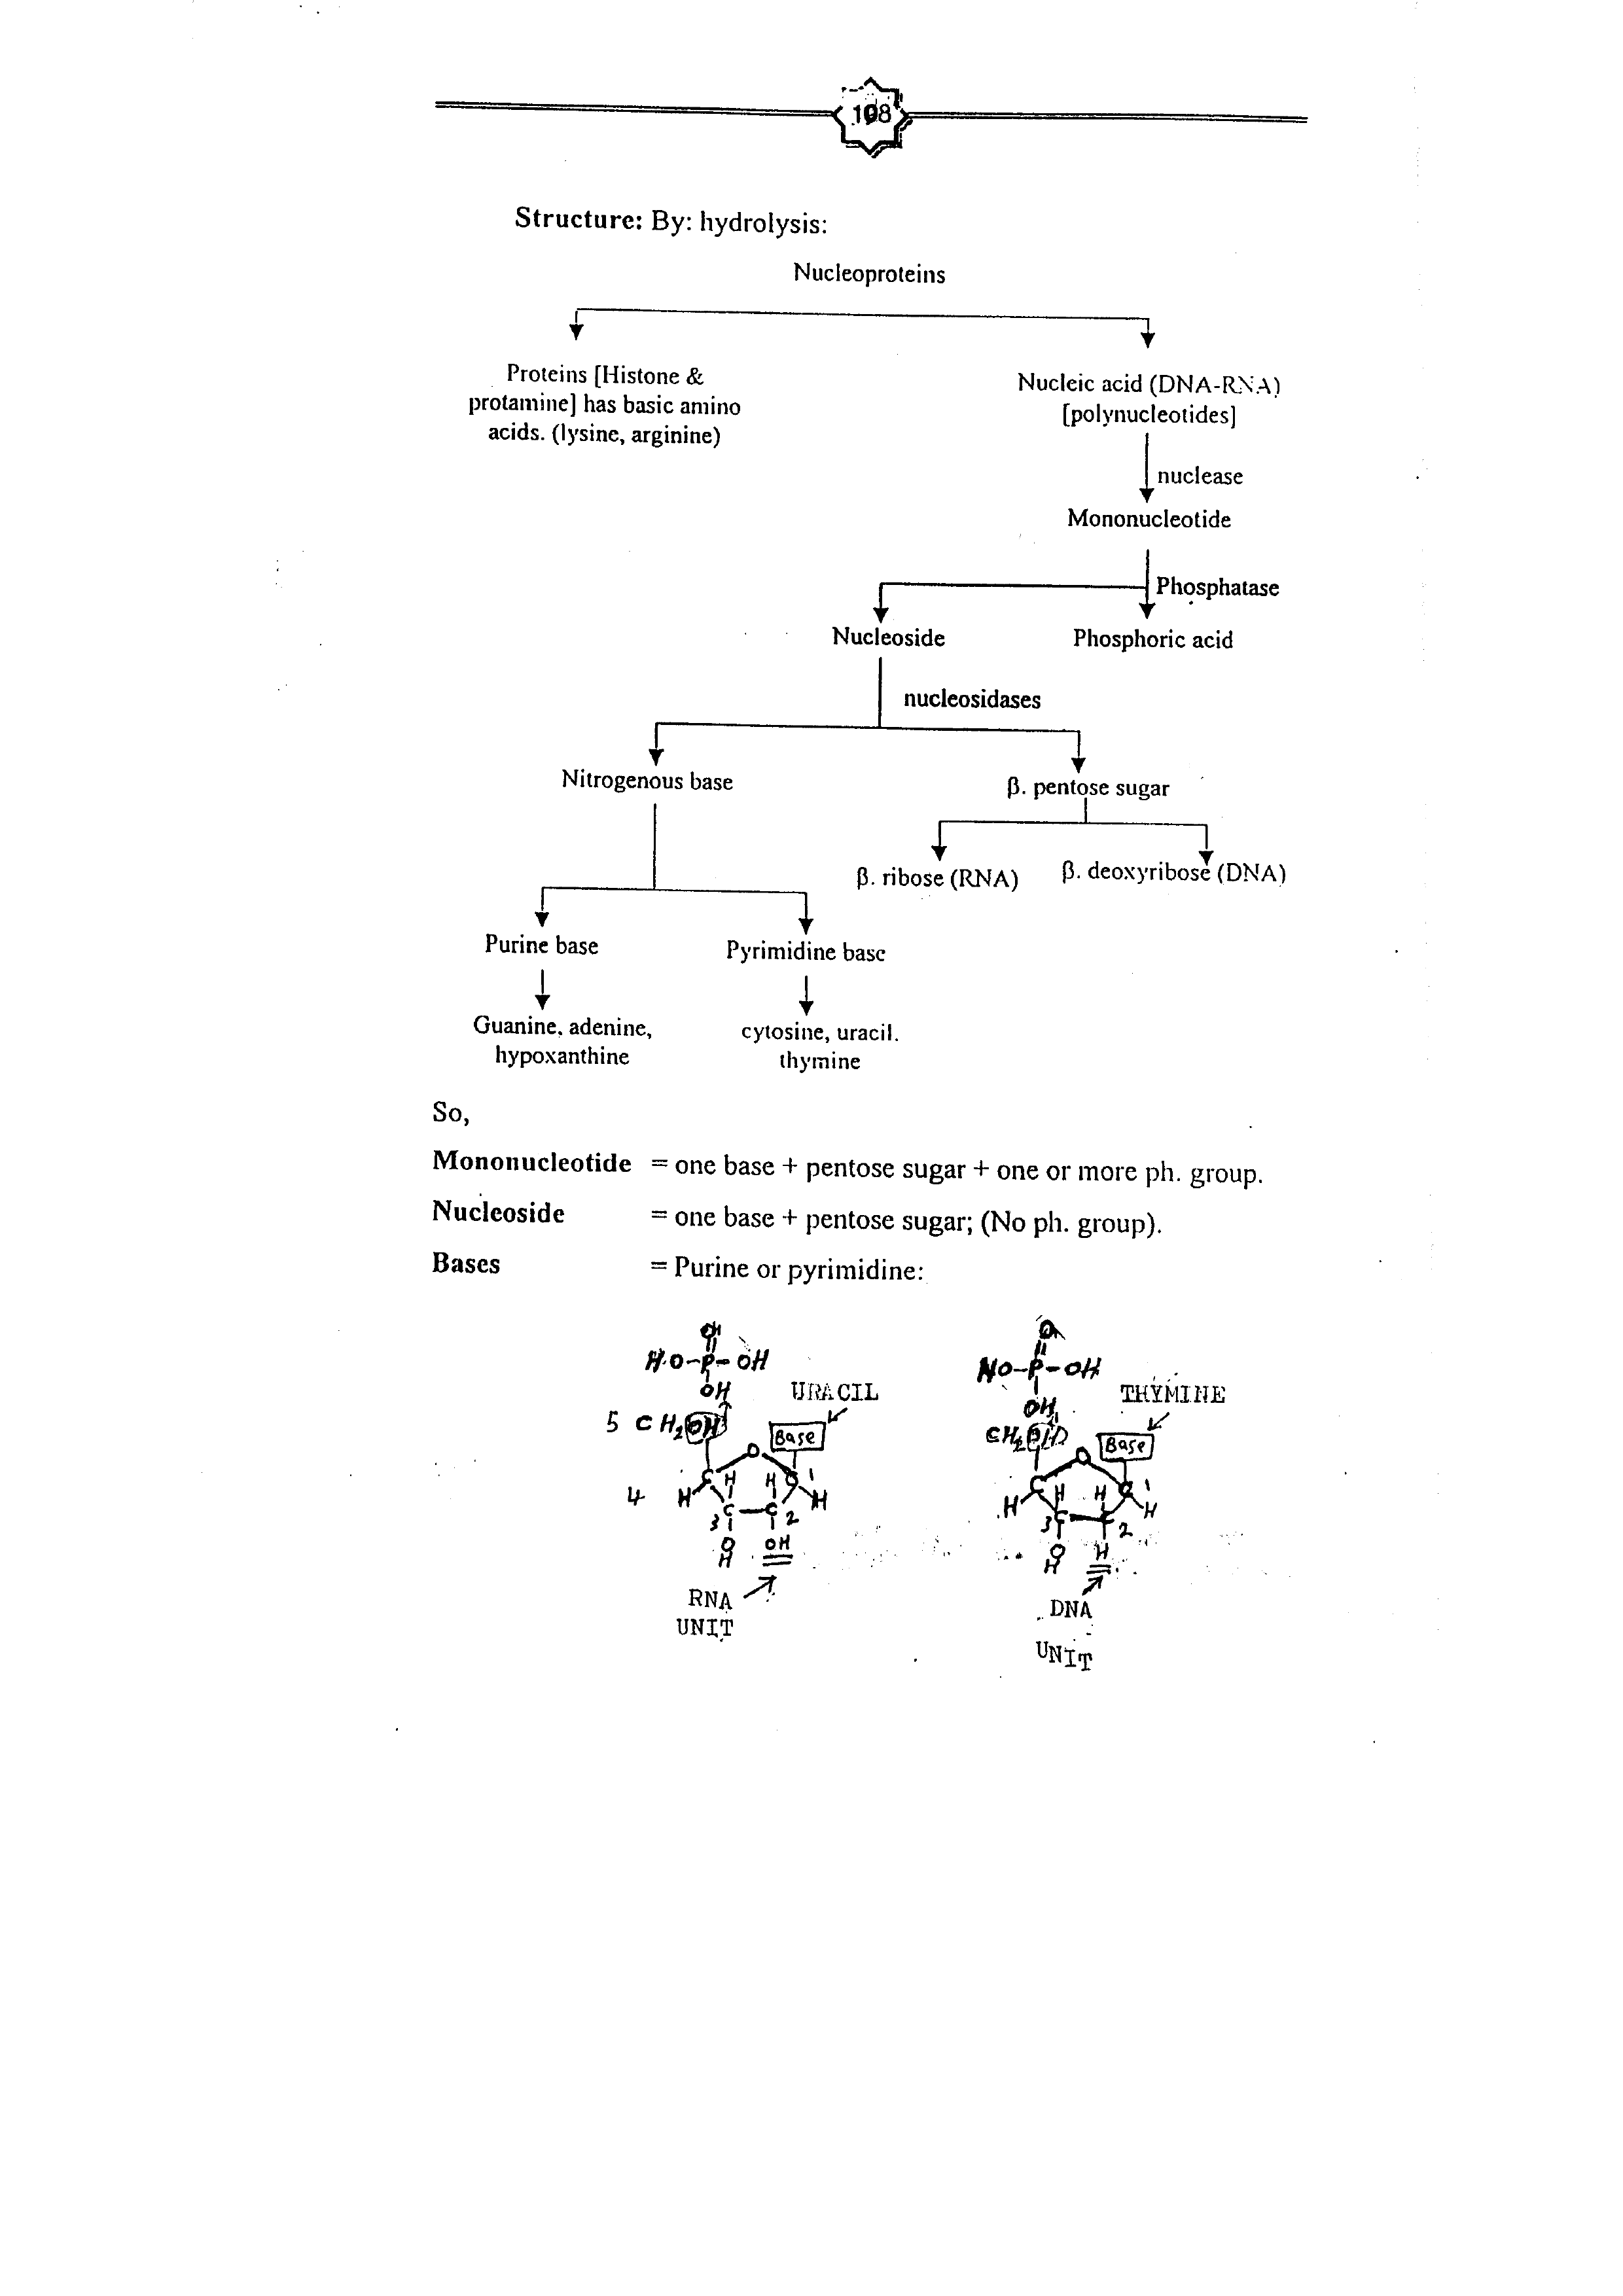 108
Structure: By: hydrolysis:
Nucleoproteins
Proteins [Histone &
protamine] has basic amino
acids. (lysine, arginine)
Nucleic acid (DNA-RNA)
[polynucleotides]
nuclease
Mononucleotide
Phosphatase
Nucleoside
Phosphoric acid
nucleosidases
Nitrogenous base
β. pentose sugar
β. ribose (RNA)
β. deoxyribose (DNA)
Purine base
Pyrimidine base
Guanine, adenine,
hypoxanthine
cytosine, uracil.
thymine
So,
Mononucleotide = one base + pentose sugar + one or more ph. group.
Nucleoside = one base + pentose sugar; (No ph. group).
Bases = Purine or pyrimidine:
HO-P-OH
OH
URACIL
5 CH2OH
Base
O
C H H C 1
4 H H
C C
3 2
O OH
H
RNA
UNIT
O
HO-P-OH
OH
THYMINE
CH2OH
Base
O
C H H C 1
H H
3 C C 2
O H
H
DNA
UNIT